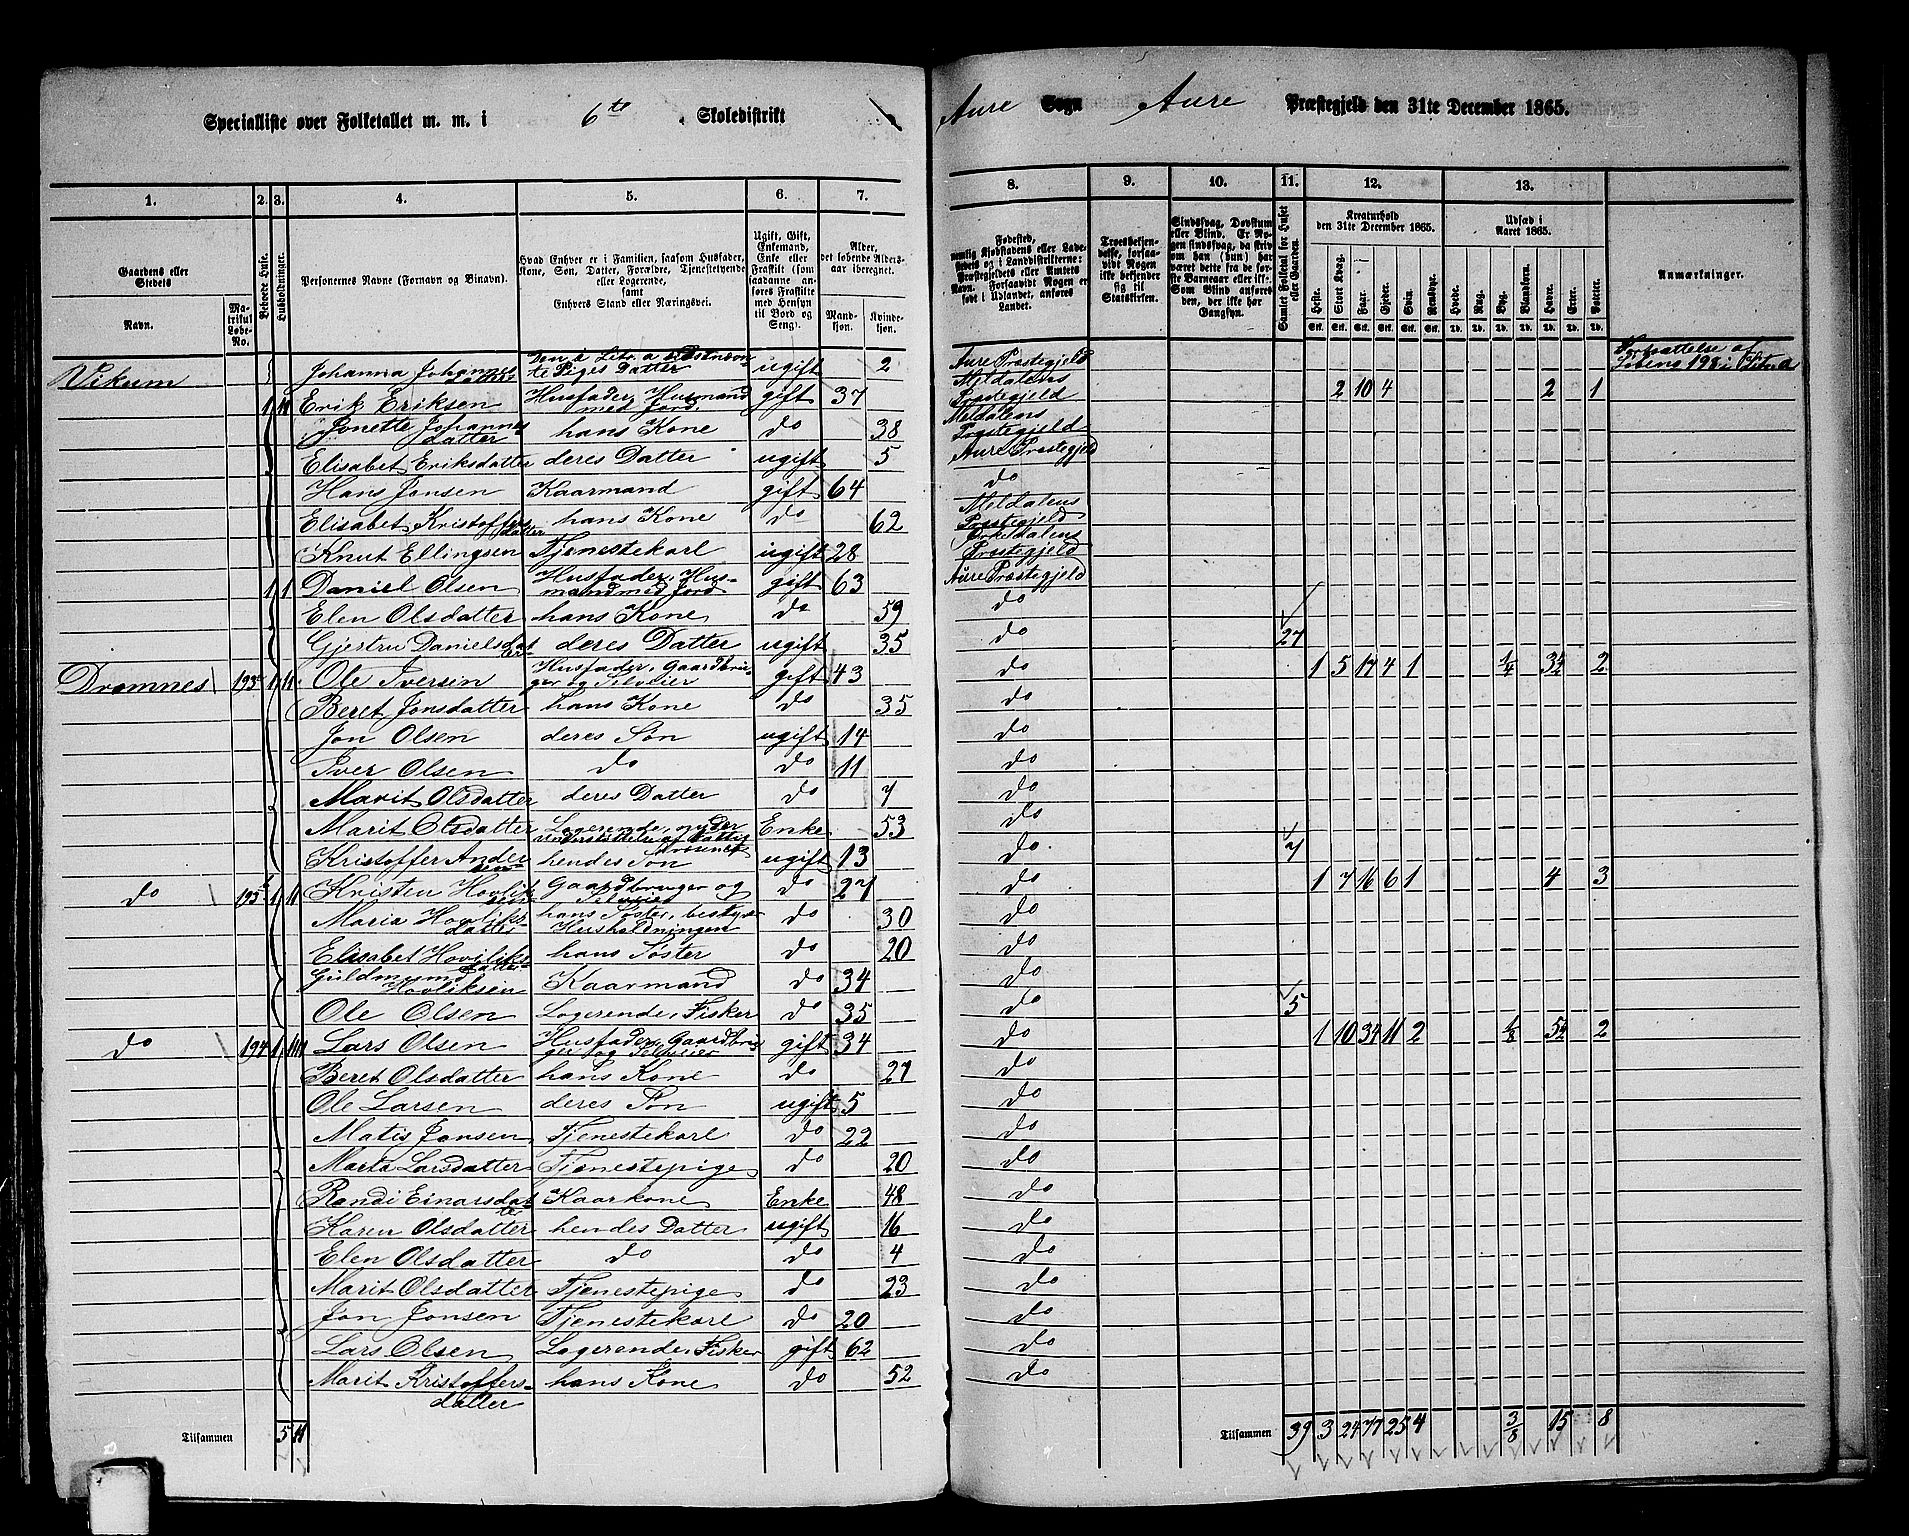 Specialliste over Folketallet m. m. i 6te Skoledistrikt Aure Sogn Aure Præstegjeld den 31te December 1865.
1. 2. 3. 4. 5. 6. 7. 8. 9. 10. 11. 12. 13.
Gaardens eller Stedets
Navn.
Matrikul Løbe-No.
Beboede Huse.
Husholdninger.
Personernes Navne (Fornavn og Binavn).
Hvad Enhver er i Familien, saasom Husfader, Kone, Søn, Datter, Forældre, Tjenestetyende eller Logerende, samt Enhvers Stand eller Næringsvei.
Ugift, Gift, Enkemand, Enke eller Fraskilt (som saadanne anføres Fraskilte med Hensyn til Bord og Seng).
Alder, det løbende Alders-aar iberegnet.
Mandkjøn. Kvindekjøn.
Fødested,
Samlet Folketal for Huset eller Gaarden.
Kreaturhold den 31te December 1865.
Udsæd i Aaret 1865.
Anmærkninger.
Heste. Stort Kvæg. Faar. Gjeder. Svin. Rensdyr. Hvede. Rug. Byg. Blandkorn. Havre. Erter. Poteter.
Vikum Johanna Johannesdatter ugift 2 Aure Præstegjeld
1 1 Erik Eriksen Husfader, Husmand med Jord gift 37 Meldalens Præstegjeld 2 10 4 2 1
Jonette Johannesdatter hans Kone do 38 Meldalens Præstegjeld
Elisabet Eriksdatter deres Datter ugift 5 Aure Præstegjeld
Hans Jonsen Kaarmand gift 64 do
Elisabet Kristoffersdatter hans Kone do 62 Meldalens Præstegjeld
Knut Ellingsen Tjenestekarl ugift 28 Orkedalens Præstegjeld
1 1 Daniel Olsen Husfader, Husmand med Jord gift 63 Aure Præstegjeld
Elen Olsdatter hans Kone do 59 do
Gjertru Danielsdatter deres Datter ugift 35 do 27
Dromnes 193a 1 1 Ole Iversen Husfader, Gaardbruger og Selveier gift 43 do 1 5 17 4 1 1/4 3½ 2
Beret Jonsdatter hans Kone do 35 do
Jon Olsen deres Søn ugift 14 do
Iver Olsen do do 11 do
Marit Olsdatter deres Datter do 7 do
Marit Olsdatter Logerende, Enke 53 do
Kristoffer Andersen hendes Søn ugift 13 do 7
do 193b 1 1 Kristen Hovliksen Gaardbruger og Selveier do 27 do 1 7 16 6 1 4 3
Maria Hovliksdatter hans Søster, bestyrer Husholdningen do 30 do
Elisabet Hovliksdatter hans Søster do 20 do
Guldmund Hovliksen Kaarmand do 34 do
Ole Olsen Logerende, Fisker do 35 do 5
do 194 1 Lars Olsen Husfader, Gaardbruger og Selveier gift 34 do 1 10 34 11 2 1/8 5½ 2
Beret Olsdatter hans Kone do 27 do
Ole Larsen deres Søn ugift 5 do
Matis Jonsen Tjenestekarl do 22 do
Marta Larsdatter Tjenestepige do 20 do
Randi Einarsdatter Kaarkone Enke 48 do
Karen Olsdatter hendes Datter ugift 16 do
Elen Olsdatter do do 4 do
Marit Olsdatter Tjenestepige do 23 do
Jon Jonsen Tjenestekarl do 20 do
Lars Olsen Logerende, Fisker gift 62 do
Marit Kristoffersdatter hans Kone do 52 do
Tilsammen 5 11 Tilsammen 39 3 24 77 25 4 3/8 15 8